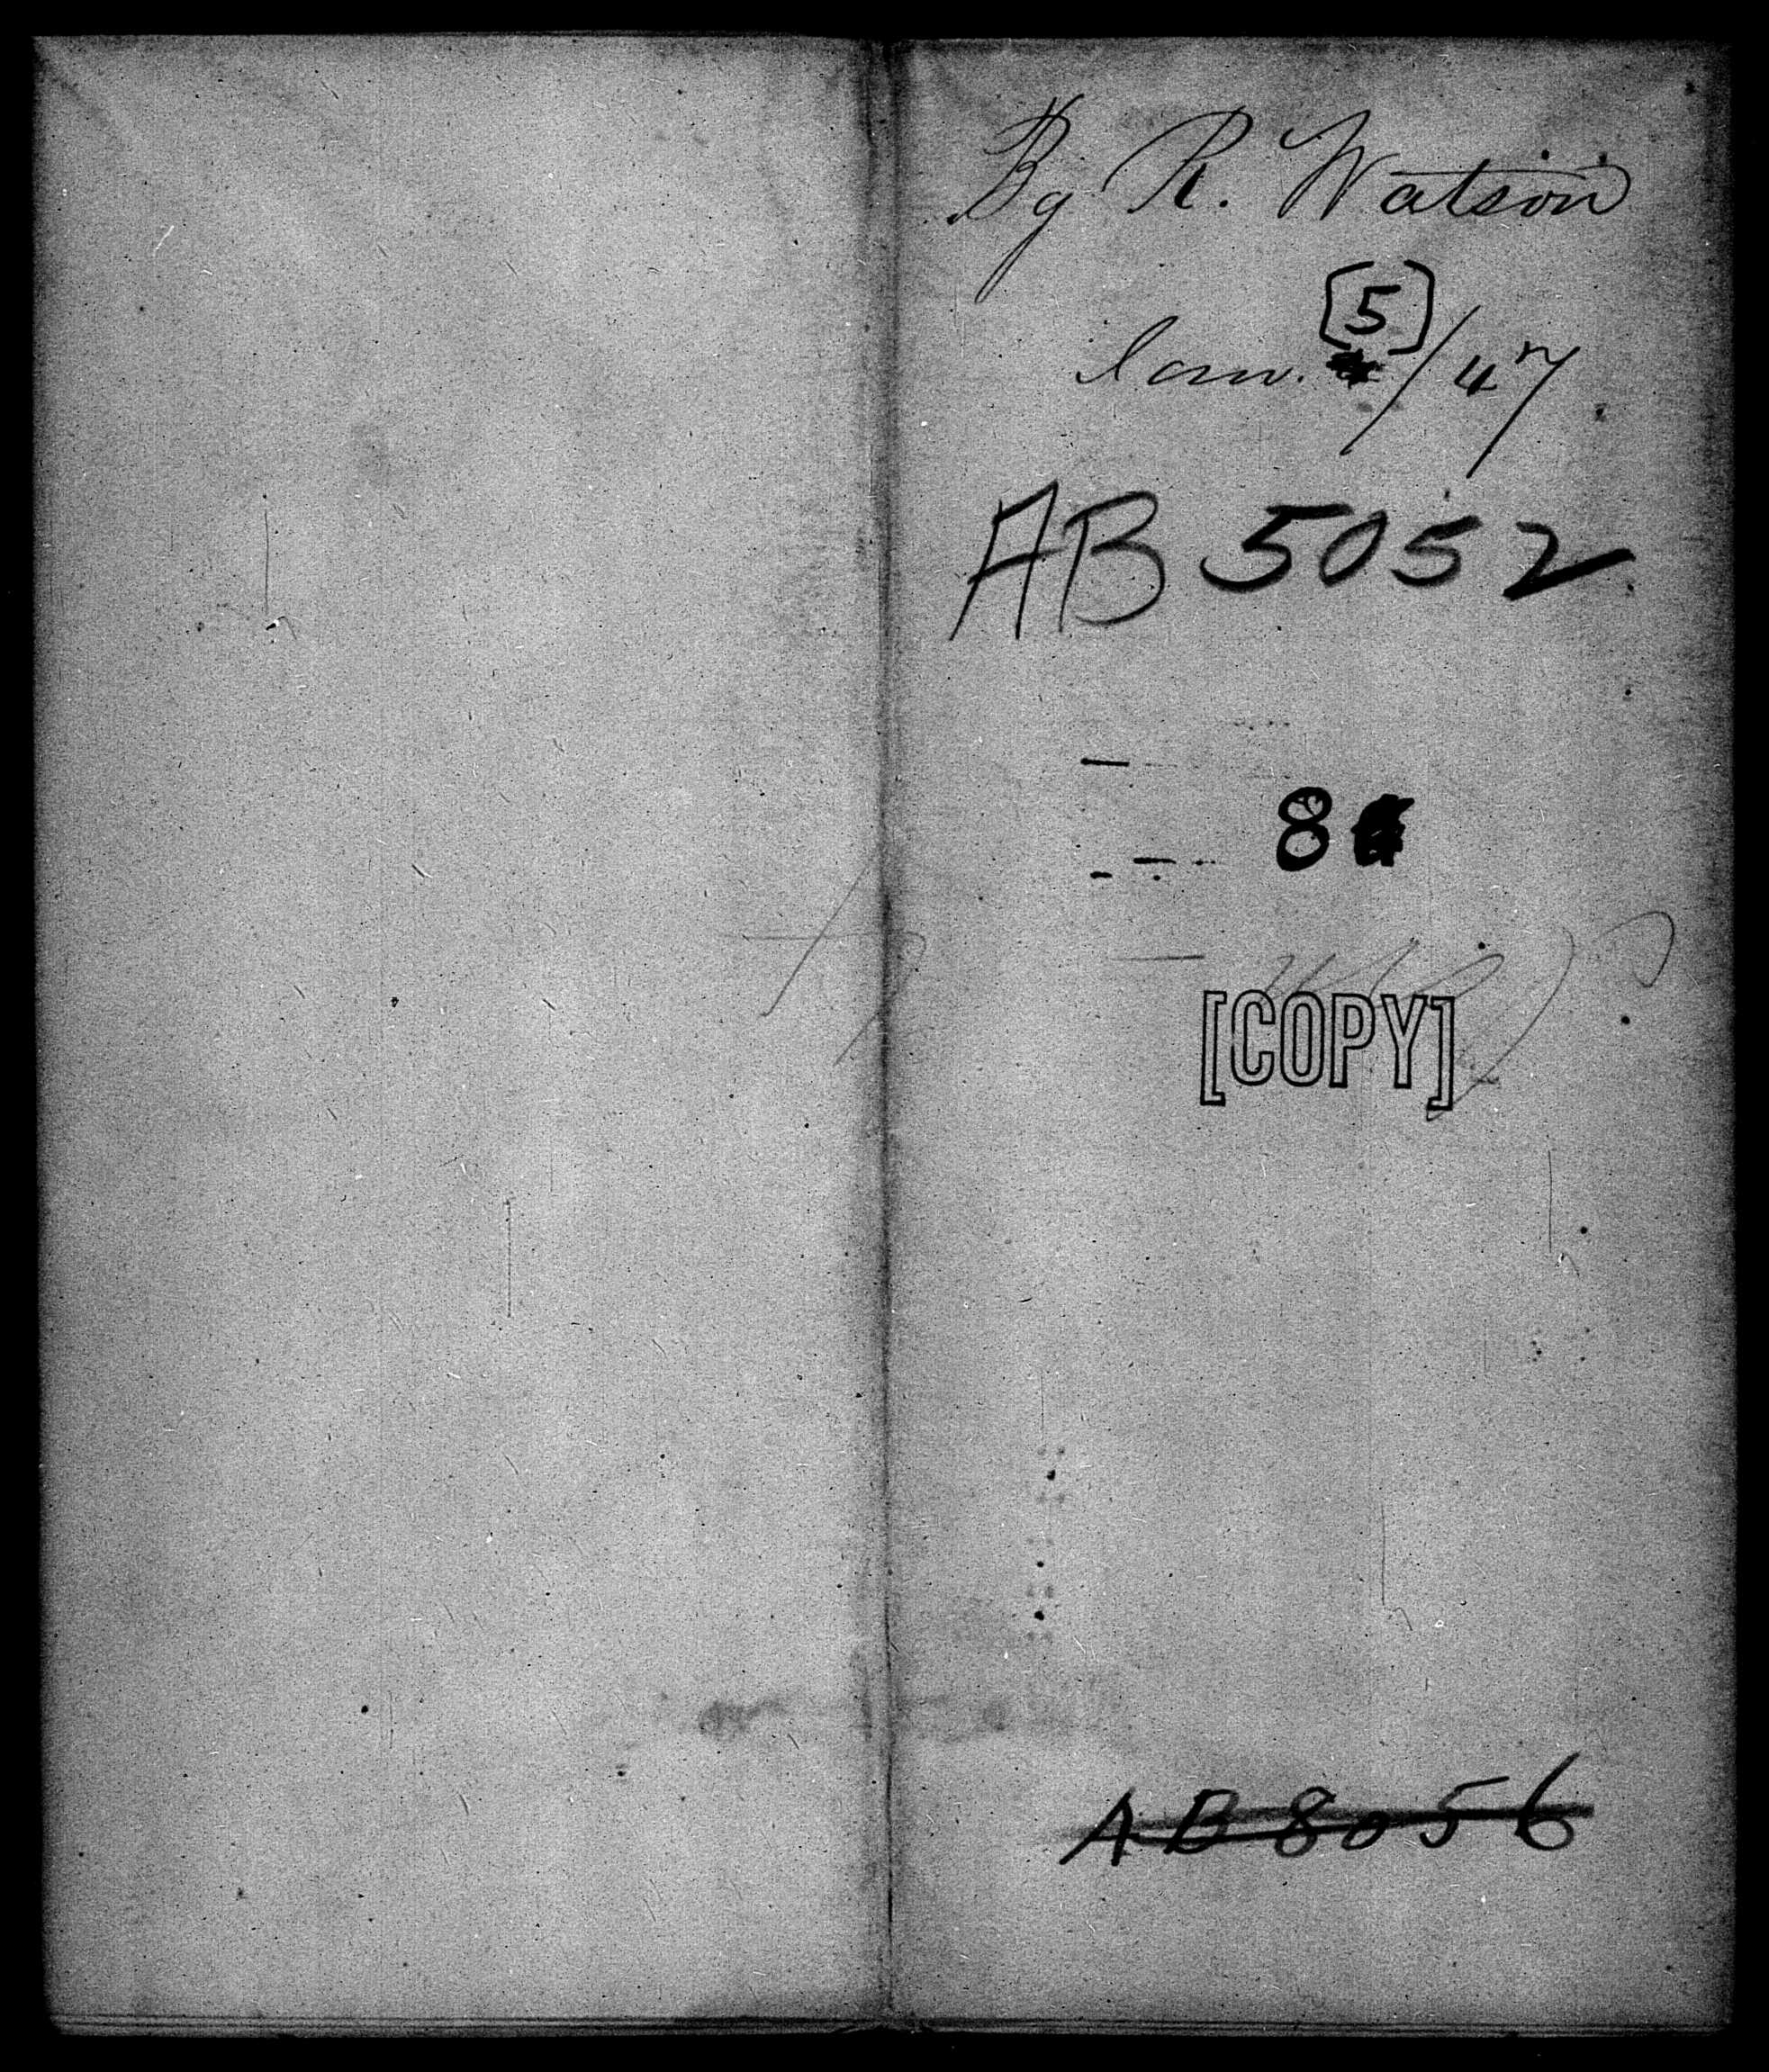 By R. Watson
[5]
Jan. /47
AB 5052
8
[COPY]
AB 8056